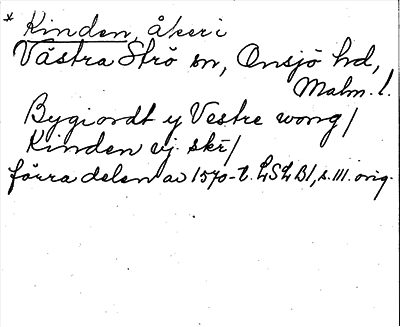 * Kinden, åker i
Västra Strö sn, Onsjö hd,
Malm. l.
Bygiordt y Vestre wong/
Kinden vj. skr/
förra delen av 1570-t. LSLB1, s. 111. orig.